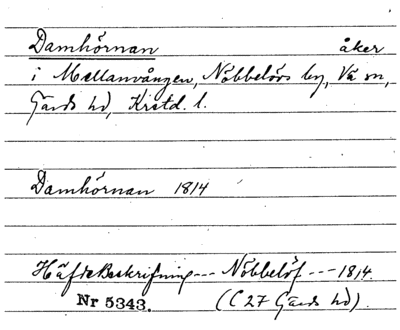 Damhörnan åker
i Mellanvången, Nöbbelövs by, Vä sn,
Gärds hd, Krstd. l.
Damhörnan 1814
HäfdeBeskrifning --- Nöbbelöf --- 1814.
Nr 5343. (C 27 Gärds hd).